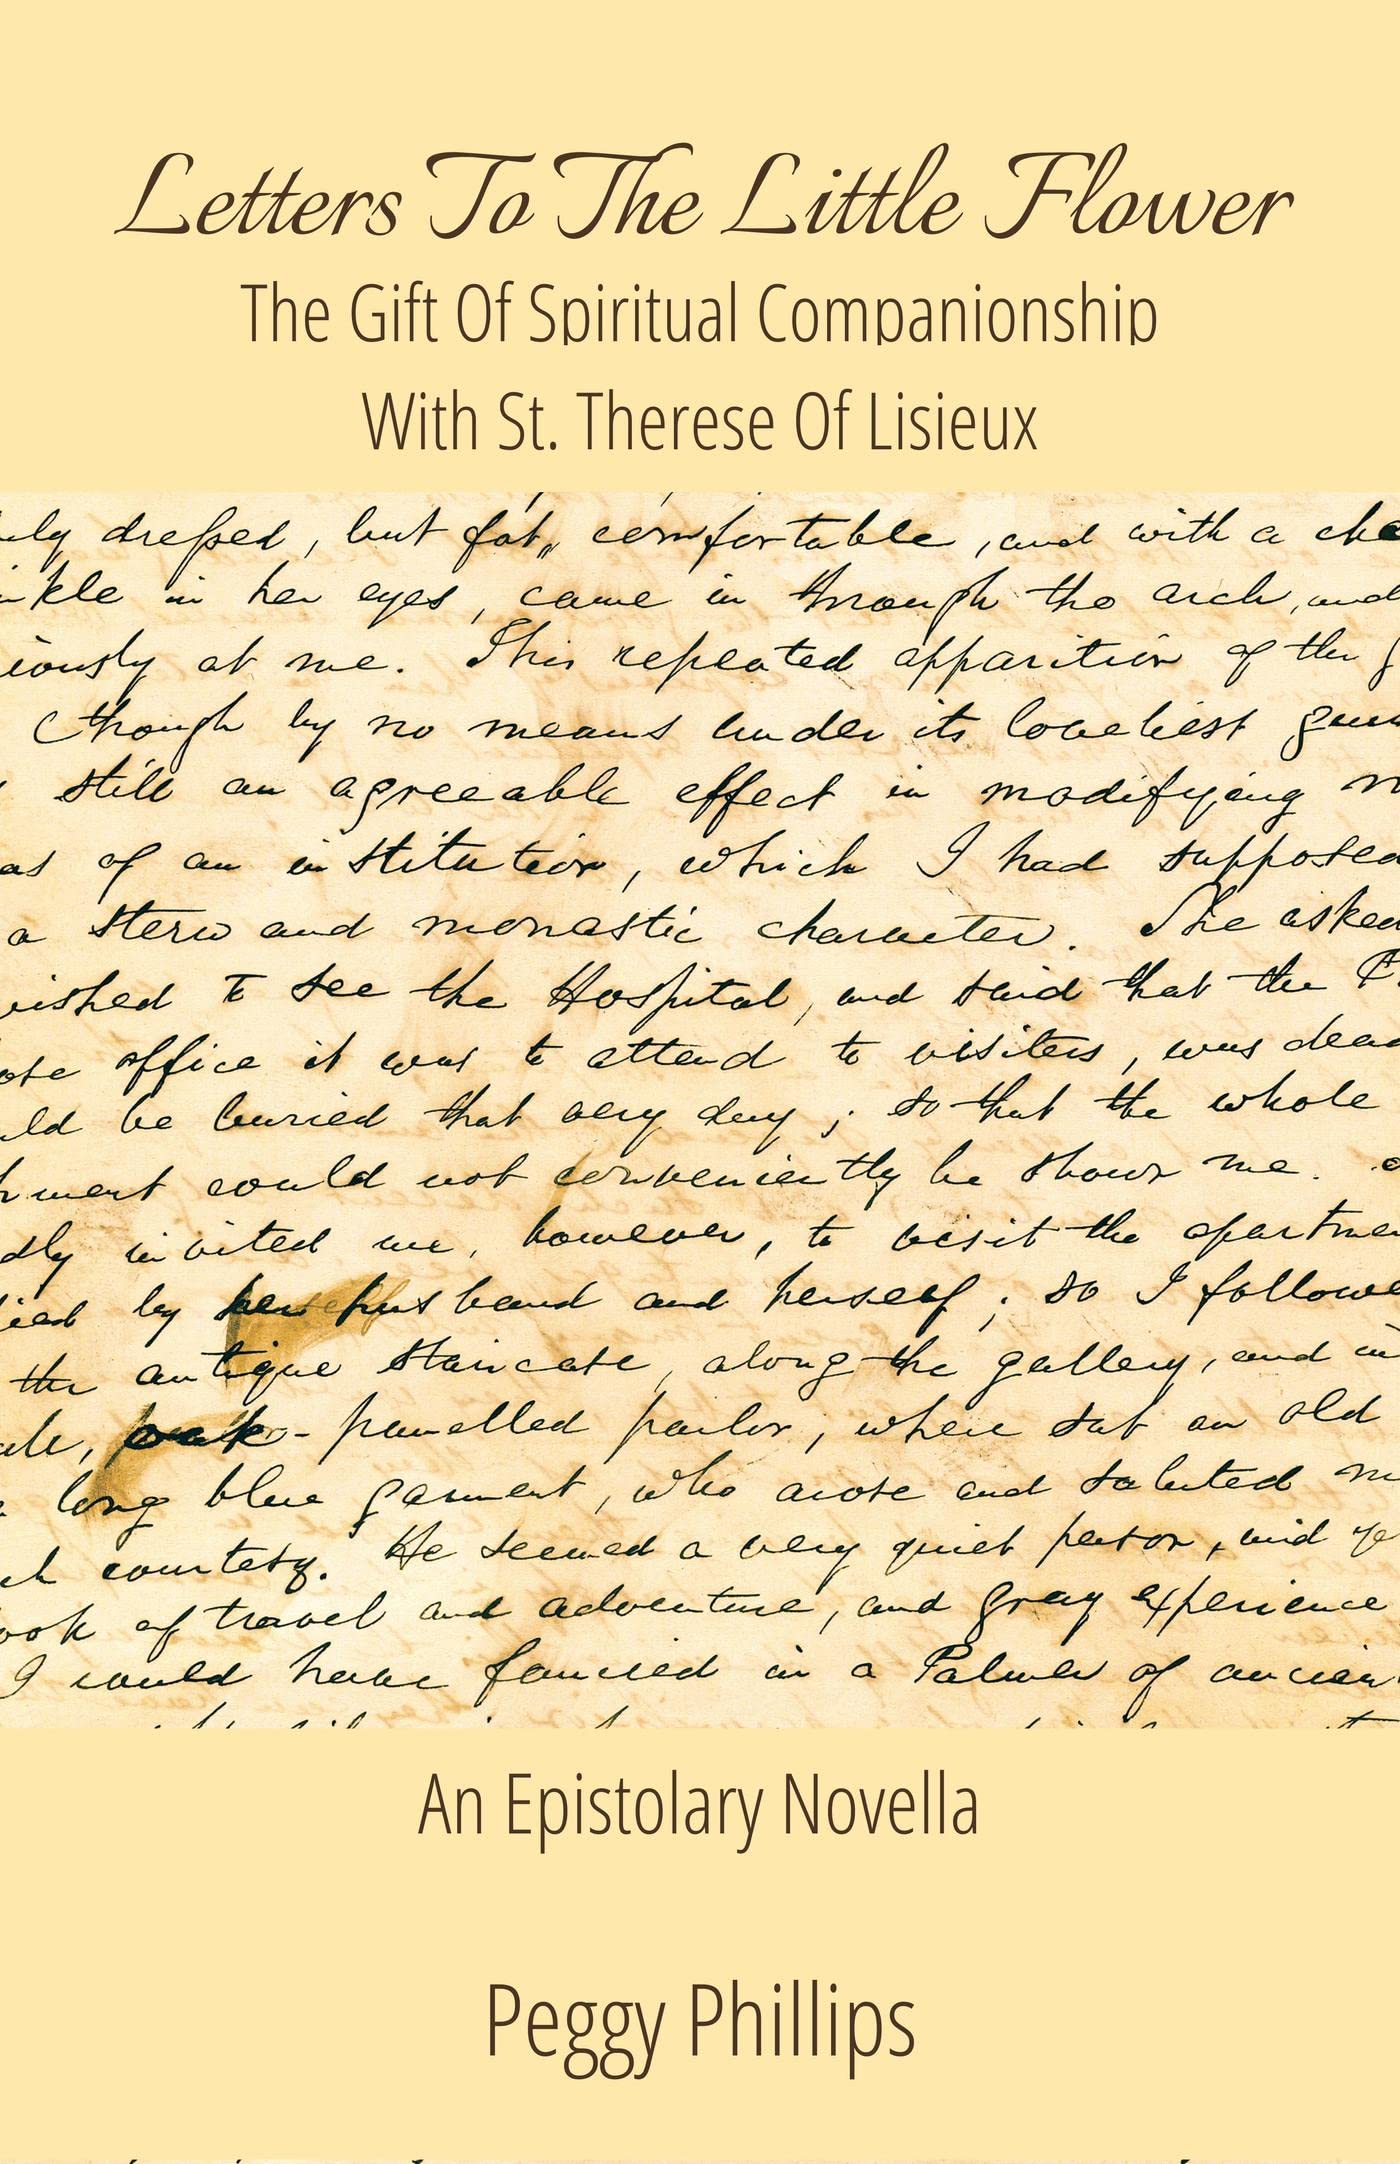 Letters To The Little Flower
The Gift Of Spiritual Companionship
With St. Therese Of Lisieux
dressed, but fat, comfortable, and with a
in her eyes, came in through the arch, and
at me. This repeated apparition of the
though by no means under its loveliest
still an agreeable effect in modifying
of an institution, which I had supposed
a stern and monastic character. She asked
wished to see the Hospital, and said that the
office it was to attend to visiters, was dead
be buried that very day; so that the whole
could not conveniently be shown me.
invited me, however, to visit the
by her husband and herself; so I followe
the antique staircase, along the gallery, and in
oak-panelled parlor, where sat an old
long blue garment, who arose and saluted
courtesy. He seemed a very quiet person, and
of travel and adventure, and gray experience
I could have fancied in a Palmer of
An Epistolary Novella
Peggy Phillips